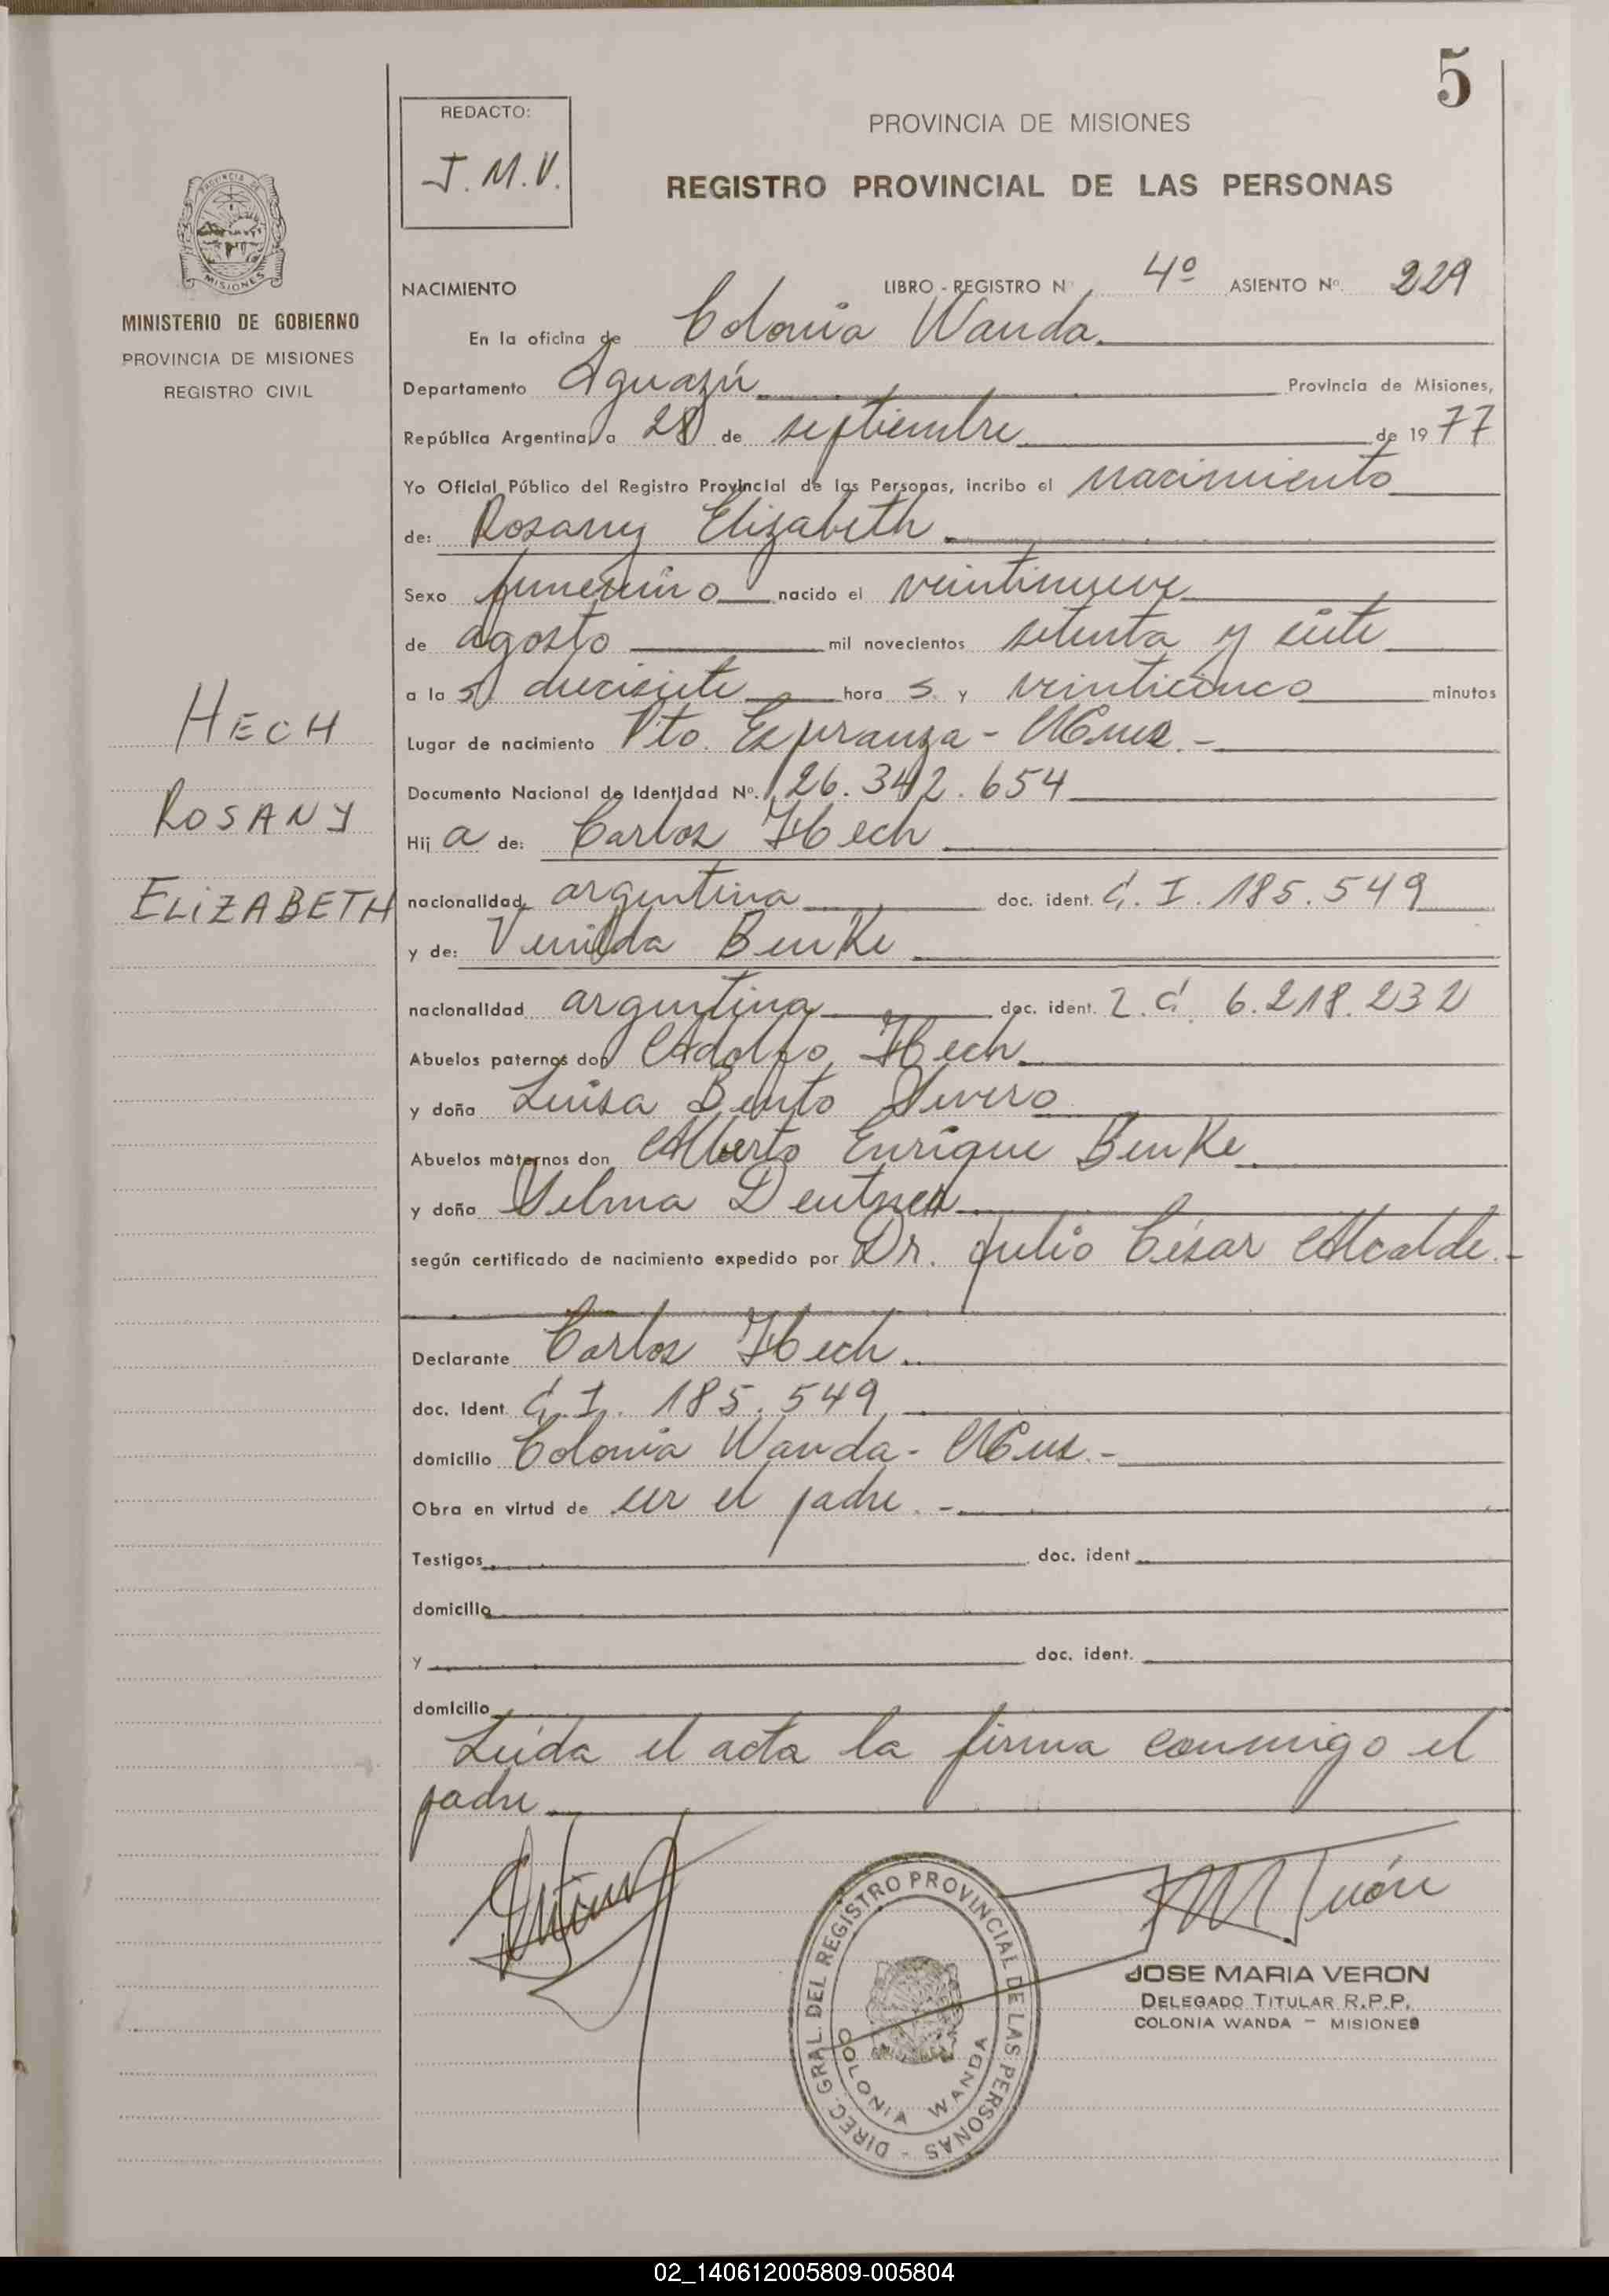 5
REDACTO:
J. M. V.
PROVINCIA DE MISIONES
REGISTRO PROVINCIAL DE LAS PERSONAS
PROVINCIA DE
MISIONES
MINISTERIO DE GOBIERNO
PROVINCIA DE MISIONES
REGISTRO CIVIL
HECH
ROSANY
ELIZABETH
NACIMIENTO LIBRO - REGISTRO Nº 4º ASIENTO Nº 229
En la oficina de Colonia Wanda.
Departamento Iguazú Provincia de Misiones,
República Argentina, a 28 de septiembre de 1977
Yo Oficial Público del Registro Provincial de las Personas, incribo el nacimiento
de: Rosany Elizabeth
Sexo femenino nacido el veintinueve
de agosto mil novecientos setenta y siete
a las diecisiete horas y veinticinco minutos
Lugar de nacimiento Pto. Esperanza - Mnes. -
Documento Nacional de Identidad Nº. 26.342.654
Hija de: Carlos Hech
nacionalidad argentina doc. ident. C. I. 185.549
y de: Venilda Benke
nacionalidad argentina doc. ident. L. C. 6.218.232
Abuelos paternos don Adolfo Hech
y doña Luisa Bento
Abuelos maternos don Alberto Enrique Benke
y doña Selma
según certificado de nacimiento expedido por Dr. Julio César Alcalde. -
Declarante Carlos Hech.
doc. Ident. C. I. 185.549
domicilio Colonia Wanda - Mnes. -
Obra en virtud de ser el padre. -
Testigos doc. ident
domicilio
y doc. ident.
domicilio
Leída el acta la firma conmigo el
padre
DIREC. GRAL. DEL REGISTRO PROVINCIAL DE LAS PERSONAS -
COLONIA WANDA
JOSE MARIA VERON
DELEGADO TITULAR R.P.P.
COLONIA WANDA - MISIONES
02_140612005809-005804